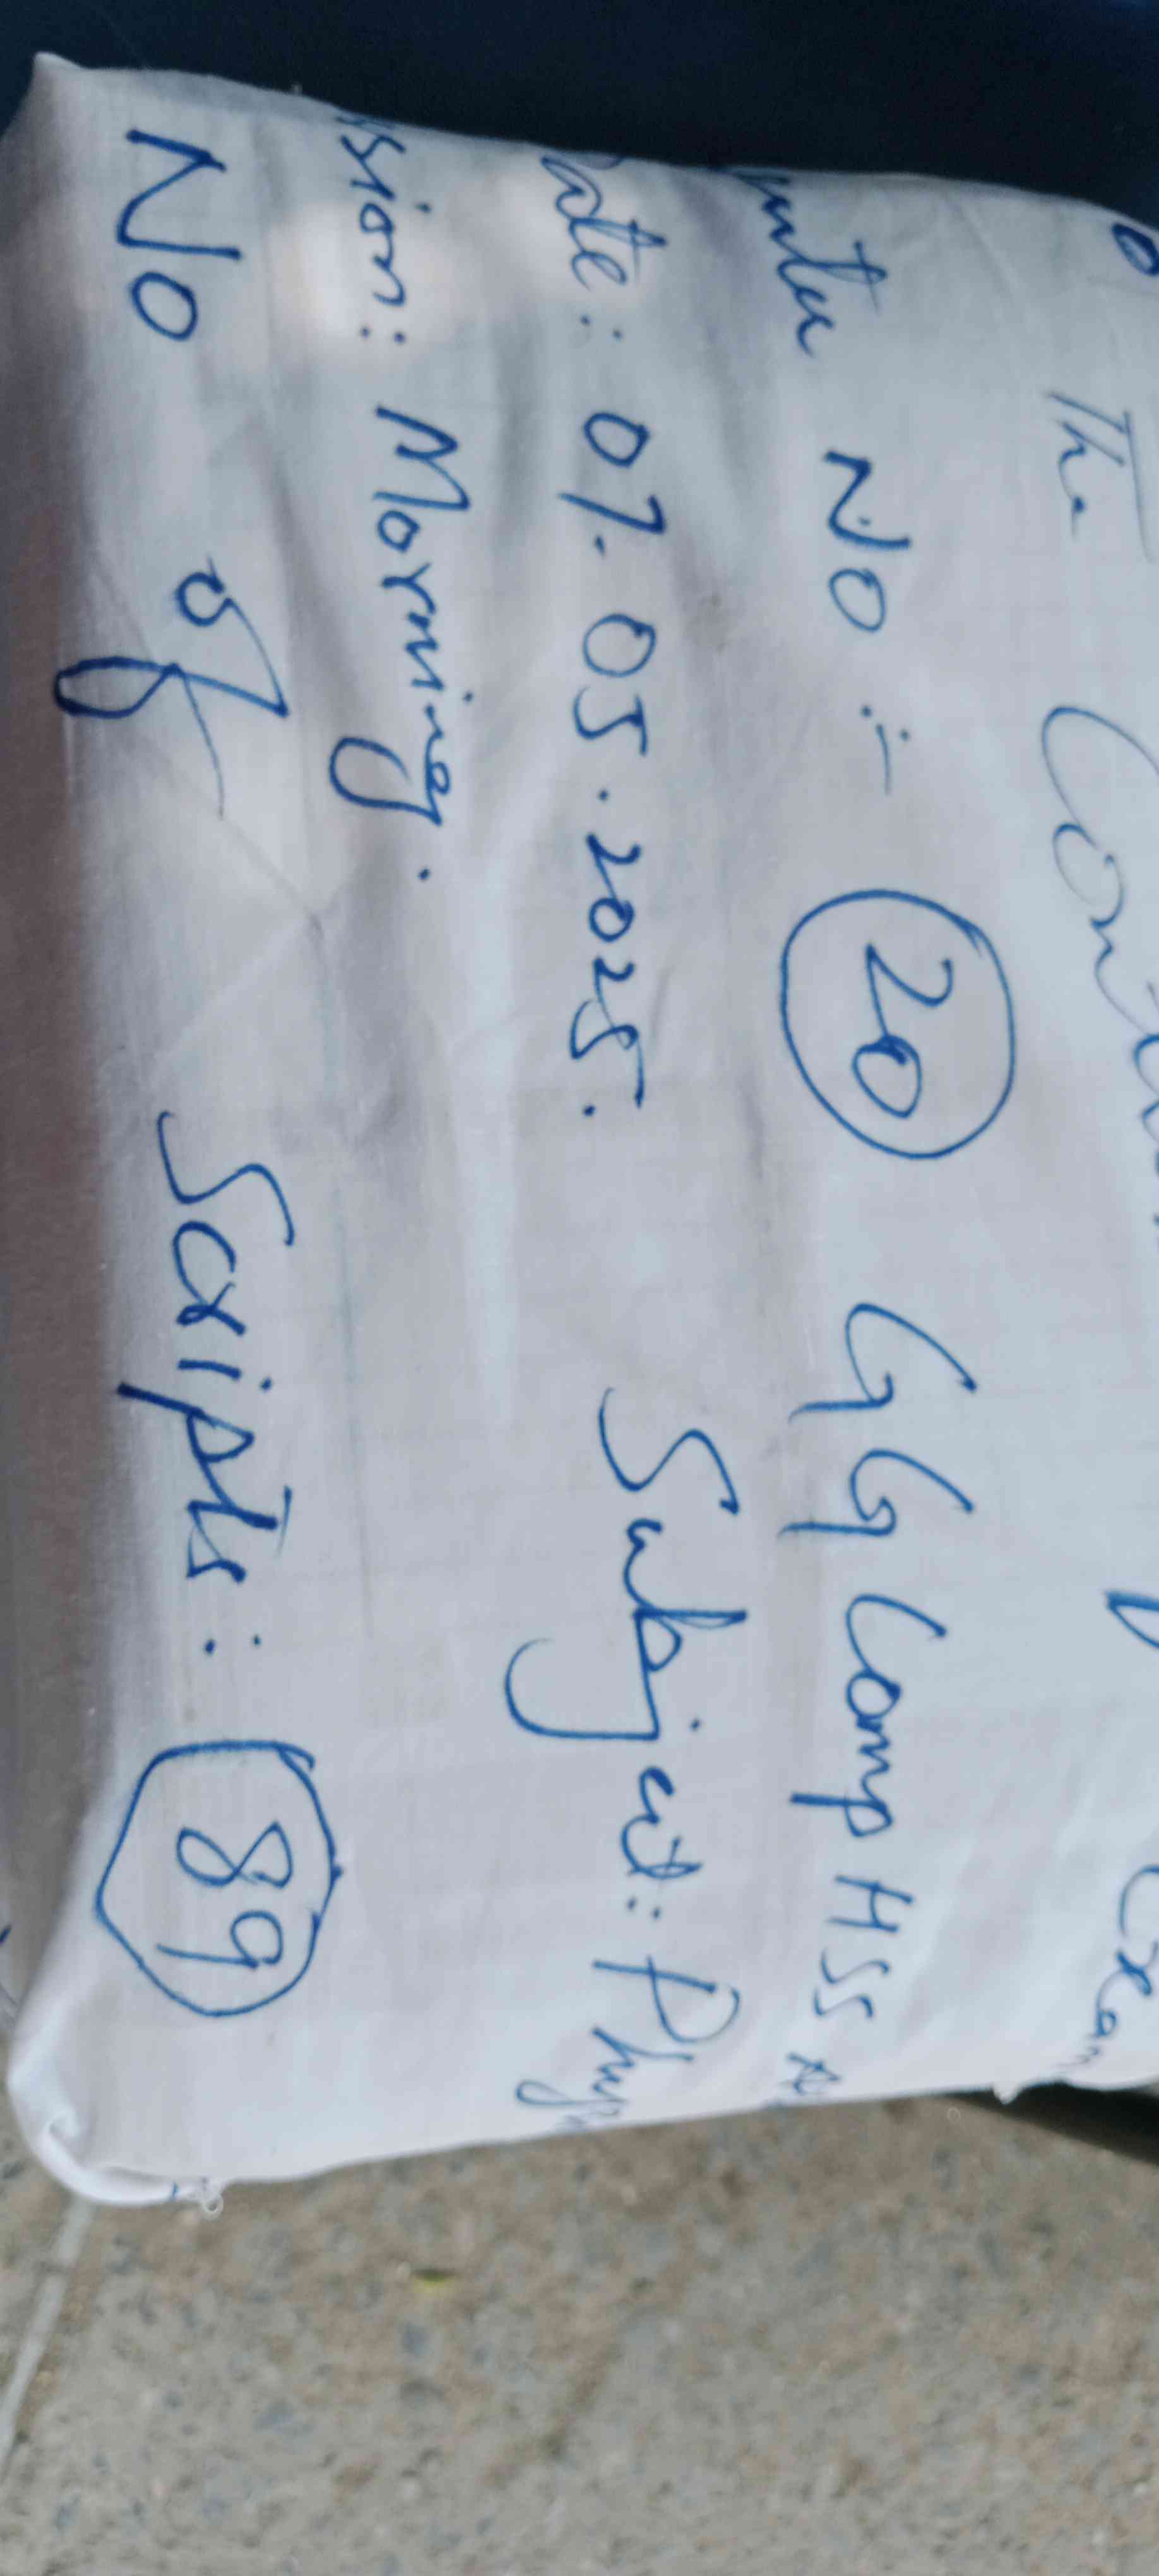 The Con Exam
No :- 20 GG Comp HSS
ate : 07.05.2025. Subject : Phys
ssion : Morning.
No of Scripts : 89